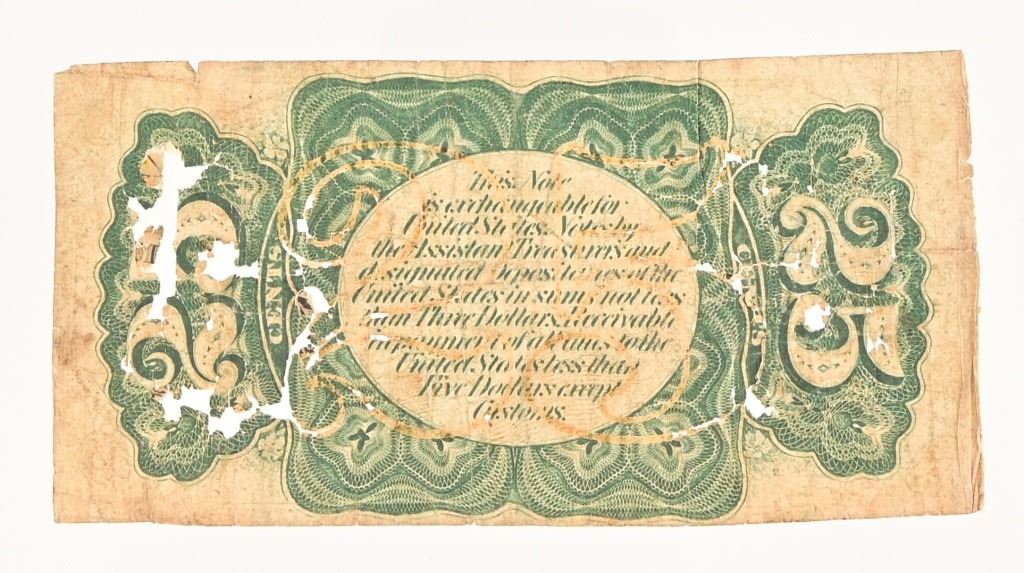 This Note
is exchangeable for
United States Notes by
the Assistant Treasurers and
designated Depositaries of the
United States in sums not less
than Three Dollars. Receivable
in payment of all dues to the
United States less than
Five Dollars except
Customs.
25
CENTS
25